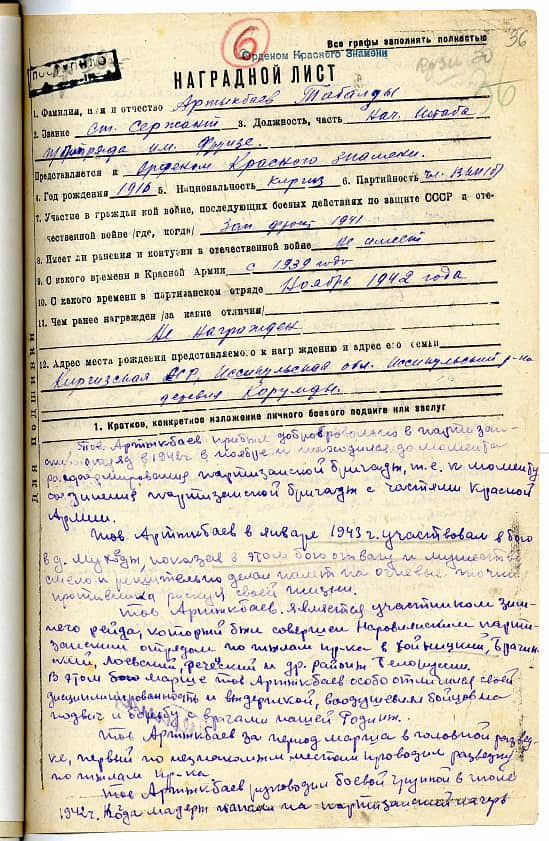 6
Все графы заполнять полностью
36
Орденом Красного Знамени
36
НАГРАДНОЙ ЛИСТ
1. Фамилия, имя и отчество Артыкбаев Табалды
2. Звание Ст. Сержант 3. Должность, часть Нач. Штаба
им. Фрунзе.
Представляется к Орденом Красного знамени.
4. Год рождения 1916 5. Национальность киргиз 6. Партийность чл. ВКП(б)
7. Участие в гражданской войне, последующих боевых действиях по защите СССР и оте-
чественной войне /где, когда/ Зап фронт 1941
8. Имеет ли ранения и контузии в отечественной войне Не имеет
9. С какого времени в Красной Армии с 1939 года
10. С какого времени в партизанском отряде Ноябрь 1942 года
11. Чем ранее награжден /за какие отличия/
Не награжден
12. Адрес места рождения представляемого к награждению и адрес его семьи
Киргизская ССР, Иссикульская обл. Иссикульский р-на
деревня Корумды.
Для подшивки
1. Краткое, конкретное изложение личного боевого подвига или заслуг
Тов. Артыкбаев прибыл добровольно в партизан-
ский отряд в 1942г в ноябре и находился до момента
расформирования партизанской бригады, т.е. к моменту
соединения партизанской бригады с частями Красной
Армии.
Тов Артыкбаев в январе 1943 г. участвовал в бою
в д. Мухоеды, показал в этом бою отвагу и мужество
смело и решительно делал налет на огневые точки
противника рискуя своей жизни.
Тов Артыкбаев является участником зим-
него рейда, который был совершен Наровлянским парти-
занским отрядом по тылам пр-ка в Хойницкий, Брагин-
ский, Лоевский, Речецкий и др. районы Белоруссии.
В этом марше тов Артыкбаев особо отличился своей
дисциплинированность и выдержкой, воодушевлял бойцов на
подвиг и борьбу с врагами нашей Родины.
Тов Артыкбаев за период марша в головной развед-
ке, первый по незнакомым местам проводил разведку
по тылам пр-ка.
Тов Артыкбаев руководил боевой группой в
1942г. Когда мадеры на партизанский лагерь